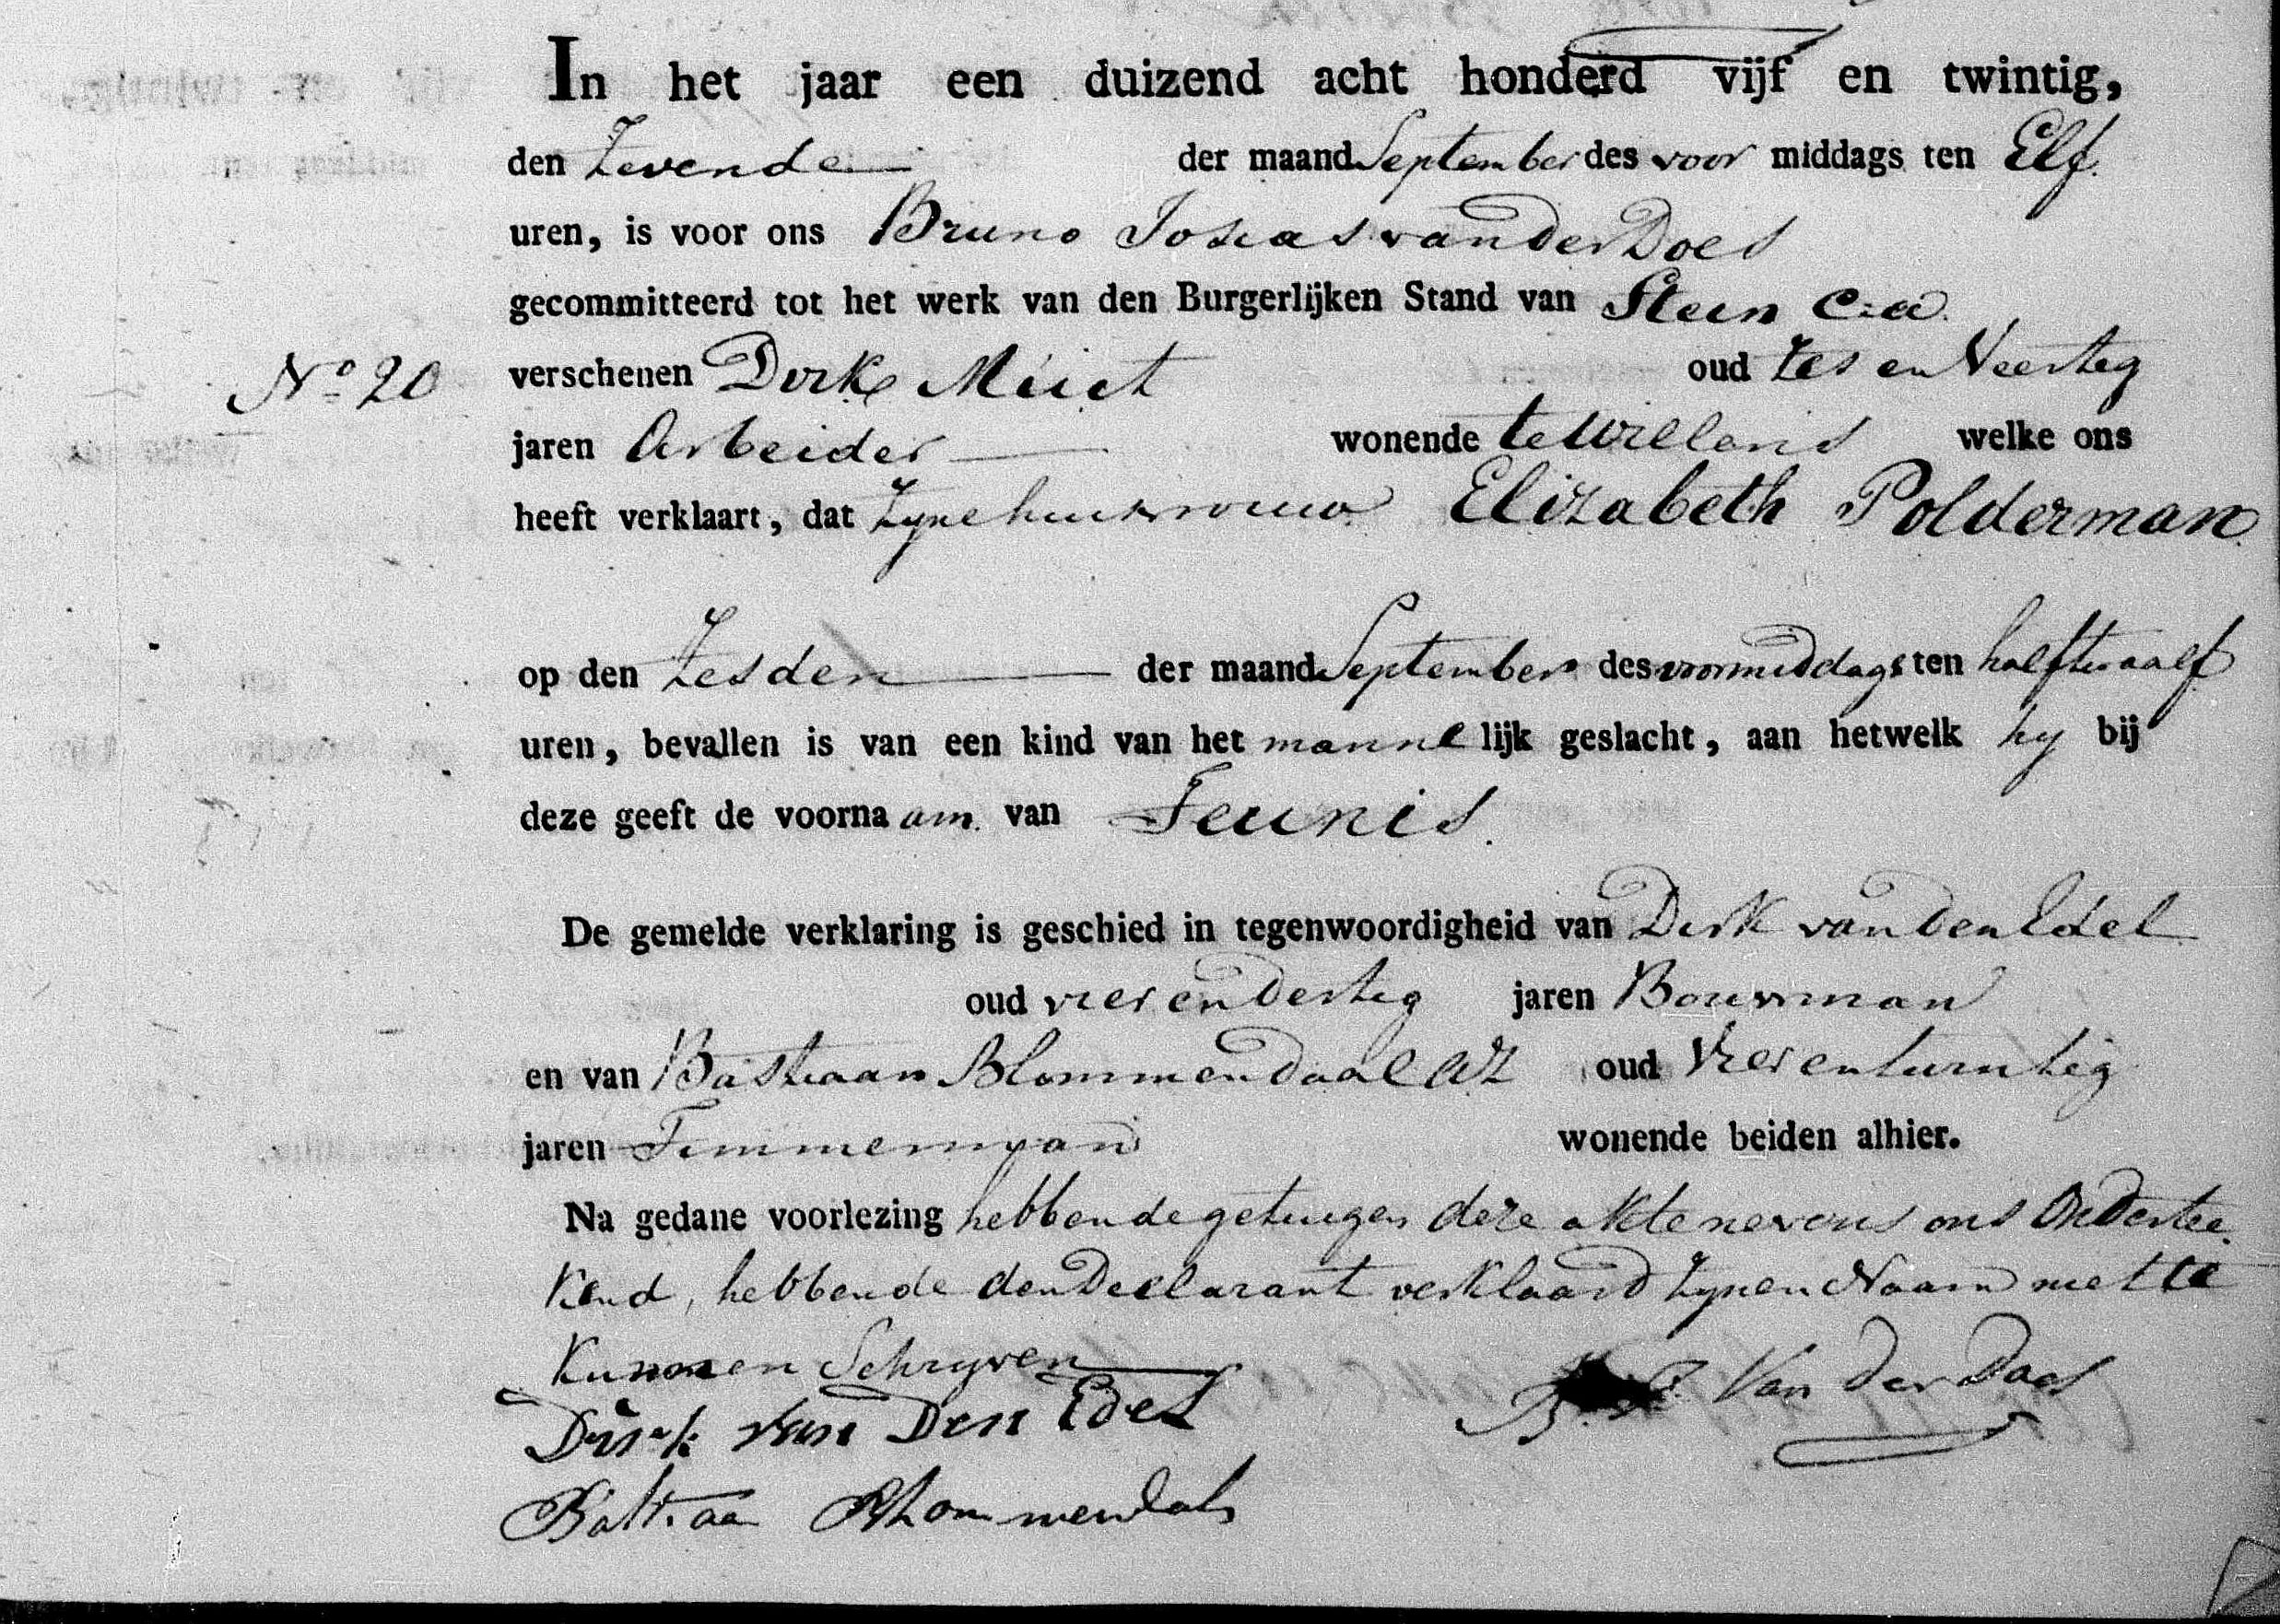 In het jaar een duizend acht honderd vijf en twintig,
den Zevende der maand September des voor middags ten Elf.
uren, is voor ons Bruno Josias van der Does
gecommitteerd tot het werk van den Burgerlijken Stand van Stein C:a.
No 20
verschenen Dirk Muit oud Zes en Veertig
jaren Arbeider wonende te Willens welke ons
heeft verklaart, dat Zyne huisvrouw Elizabeth Polderman
op den Zesden der maand September des voormiddags ten halftwaalf
uren, bevallen is van een kind van het manne lijk geslacht, aan hetwelk hy bij
deze geeft de voorna am. van Teunis.
De gemelde verklaring is geschied in tegenwoordigheid van Dirk van den Edel
oud vier en Dertig jaren Bouwman
en van Bastiaan Blommendaal AZ oud Vier en twintig
jaren Timmerman wonende beiden alhier.
Na gedane voorlezing hebben de getuigen deze akte nevens ons Ondertee
kend, hebbende den Declarant verklaard Zynen Naam niet te
Kunnen Schryven
Dirk van Den Edel
B. J. Van der Does
Bastiaa Blommendal